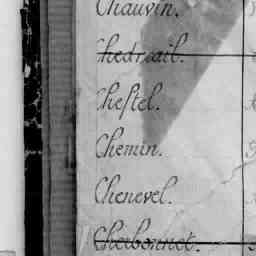 Chauvin.
Chedruil.
Chestel.
Chemin.
Chenevel.
Cherbonnet.